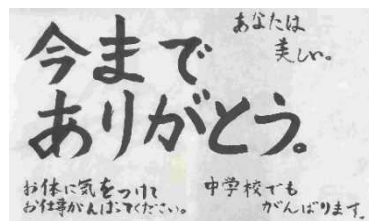 今まで
ありがとう。
あなたは
美しい。
お体に気をつけて
お仕事がんばってください。
中学校でも
がんばります。